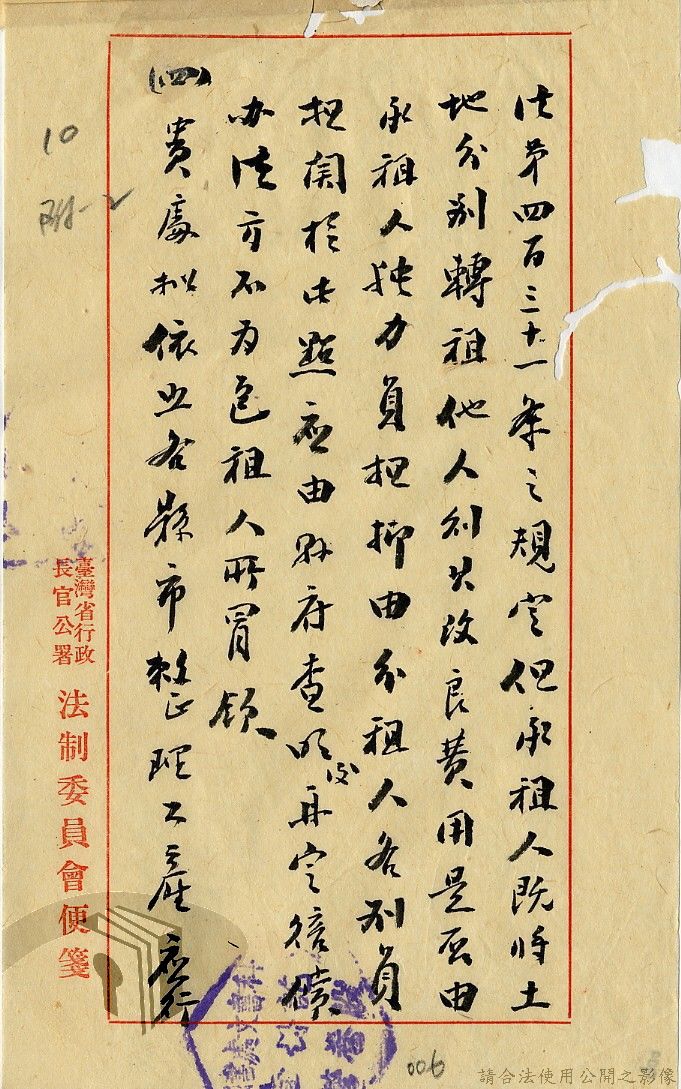 法第四百三十一条之規定但承租人既將土
地分别轉租他人則其改良費用是否由
承租人独力負担抑由分租人各别負
担関於此點应由縣府查明後再定償
办法方不为包租人所冒領
(四)貴處拟依照各縣市整理公產应行
臺灣省行政
長官公署
法制委員會便箋
10
附-2
006
請合法使用公開之影像